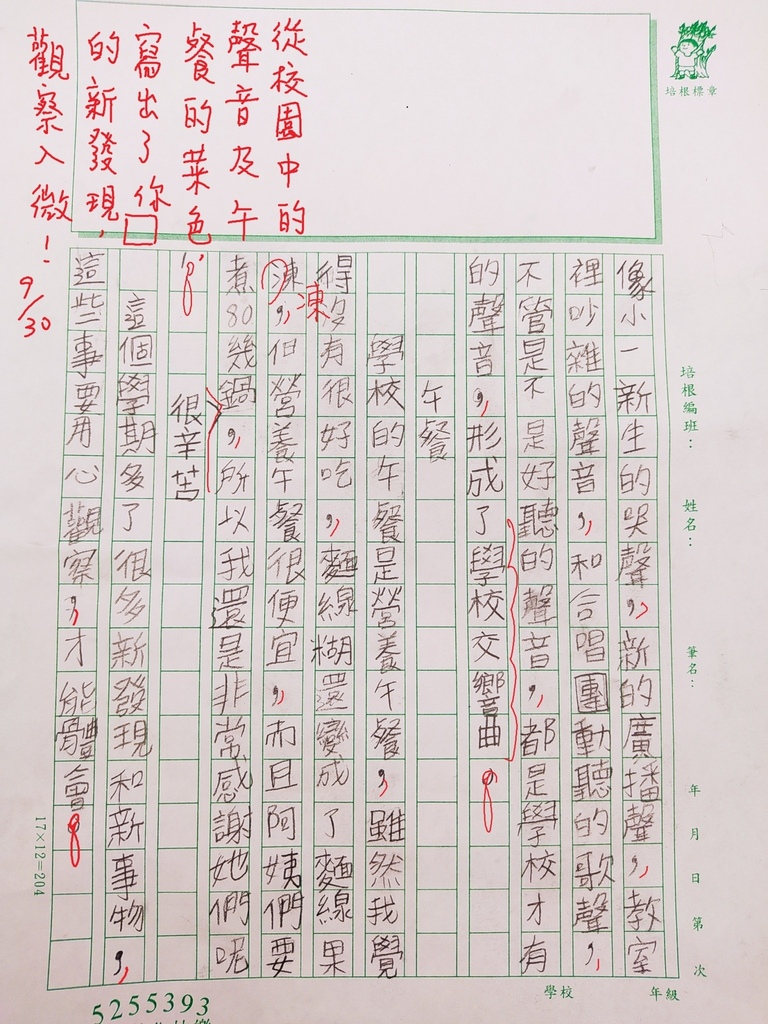 培根標章
從校園中的
聲音及午
餐的菜色,
寫出了你
的新發現,
觀察入微!
9/30
像小一新生的哭聲,新的廣播聲,教室
裡吵雜的聲音,和合唱團動聽的歌聲,
不管是不是好聽的聲音,都是學校才有
的聲音,形成了學校交響曲。
午餐
學校的午餐是營養午餐,雖然我覺
得沒有很好吃,麵線糊還變成了麵線果
凍,但營養午餐很便宜,而且阿姨們要
凍
煮80幾鍋,所以我還是非常感謝她們呢
很辛苦
這個學期多了很多新發現和新事物,
這些事要用心觀察,才能體會。
培根編班:
姓名:
筆名:
年 月 日 第 次
學校 年級
17×12=204
5255393